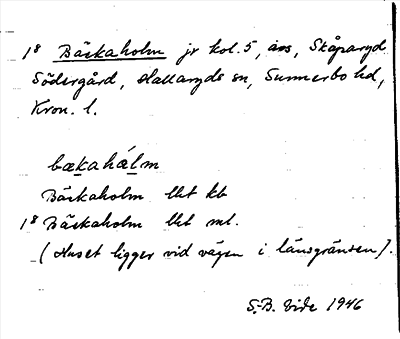 18 Bäckaholm jr kol. 5, avs, Skåparyd
Södergård, Hallaryds sn, Sunnerbo hd,
Kron. l.
bækahålm
Bäckaholm lht kb
18 Bäckaholm lht ml.
(Huset ligger vid vägen i länsgränsen).
S.-B. Vide 1946